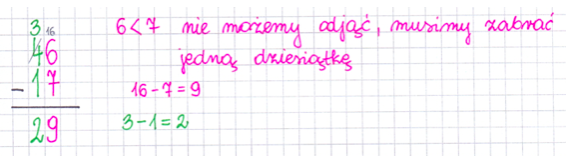 3 16
46 6<7 nie możemy odjąć, musimy zabrać
jedną dziesiątkę
- 17 16-7=9
29 3-1=2